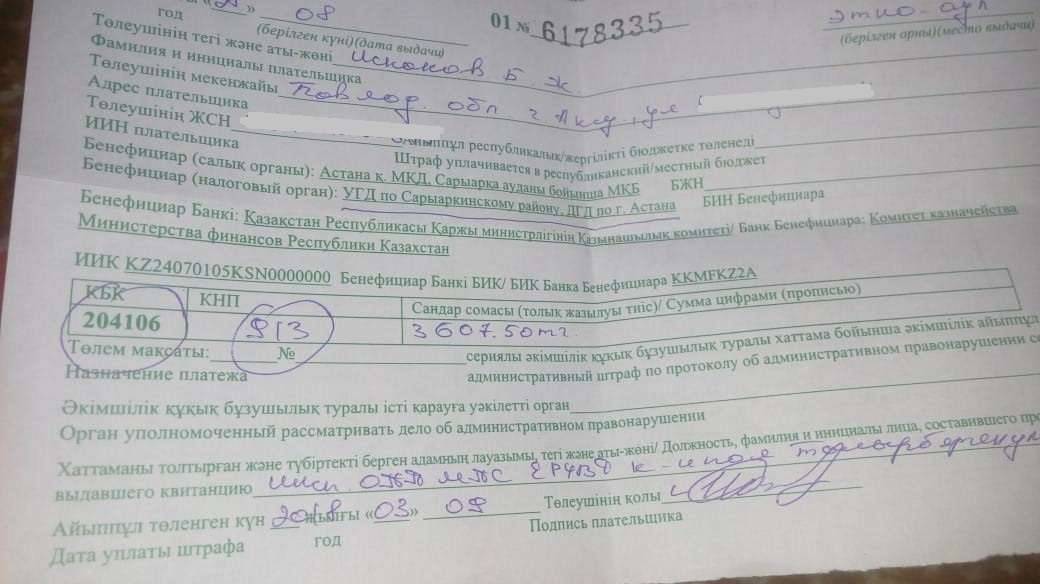 «25» 08
год
(берілген күні)(дата выдачи)
01 № 6178335
этно-аул
(берілген орны)(место выдачи)
Төлеушінің тегі және аты-жөні Искаков Б. Ж
Фамилия и инициалы плательщика
Төлеушінің мекенжайы Павлод. обл г Аксу, ул
Адрес плательщика
Төлеушінің ЖСН
ИИН плательщика
Айыппұл республикалық/жергілікті бюджетке төленеді
Штраф уплачивается в республиканский/местный бюджет
Бенефициар (салық органы): Астана қ. МКД, Сарыарка ауданы бойынша МКБ БЖН
Бенефициар (налоговый орган): УГД по Сарыаркинскому району, ДГД по г. Астана БИН Бенефициара
Бенефициар Банкі: Қазақстан Республикасы Қаржы министрлігінің Қазынашылық комитеті/ Банк Бенефициара: Комитет казначейства
Министерства финансов Республики Казахстан
ИИК KZ24070105KSN0000000 Бенефициар Банкі БИК/ БИК Банка Бенефициара KKMFKZ2A
КБК КНП Сандар сомасы (толық жазылуы тиіс)/ Сумма цифрами (прописью)
204106 913 3607.50тг
Төлем мақсаты: № сериялы әкімшілік құқық бұзушылық туралы хаттама бойынша әкімшілік айыппұл
Назначение платежа административный штраф по протоколу об административном правонарушении се
Әкімшілік құқық бұзушылық туралы істі қарауға уәкілетті орган
Орган уполномоченный рассматривать дело об административном правонарушении
Хаттаманы толтырған және түбіртекті берген адамның лауазымы, тегі және аты-жөні/ Должность, фамилия и инициалы лица, составившего про
выдавшего квитанцию инсп.
Айыппұл төленген күн 2018 жылғы «03» 09 Төлеушінің қолы
Дата уплаты штрафа год Подпись плательщика